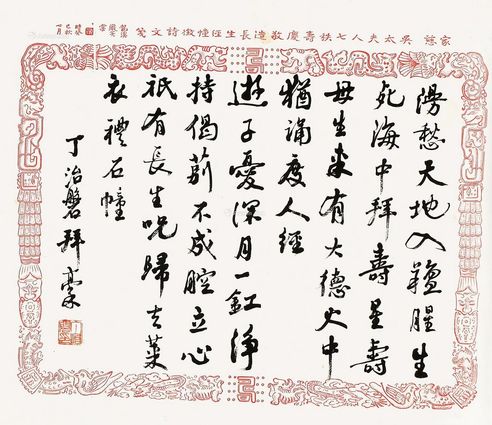 家慈 吳太夫人七秩壽慶敬造長生經幢徵詩文箋
漫愁天地入羶腥生
死海中拜壽星壽
母生來有大德火中
猶誦度人經
遊子憂深月一缸淨
持偈不成腔立心
祇有長生咒歸去萊
衣禮石幢
丁治磐拜稾